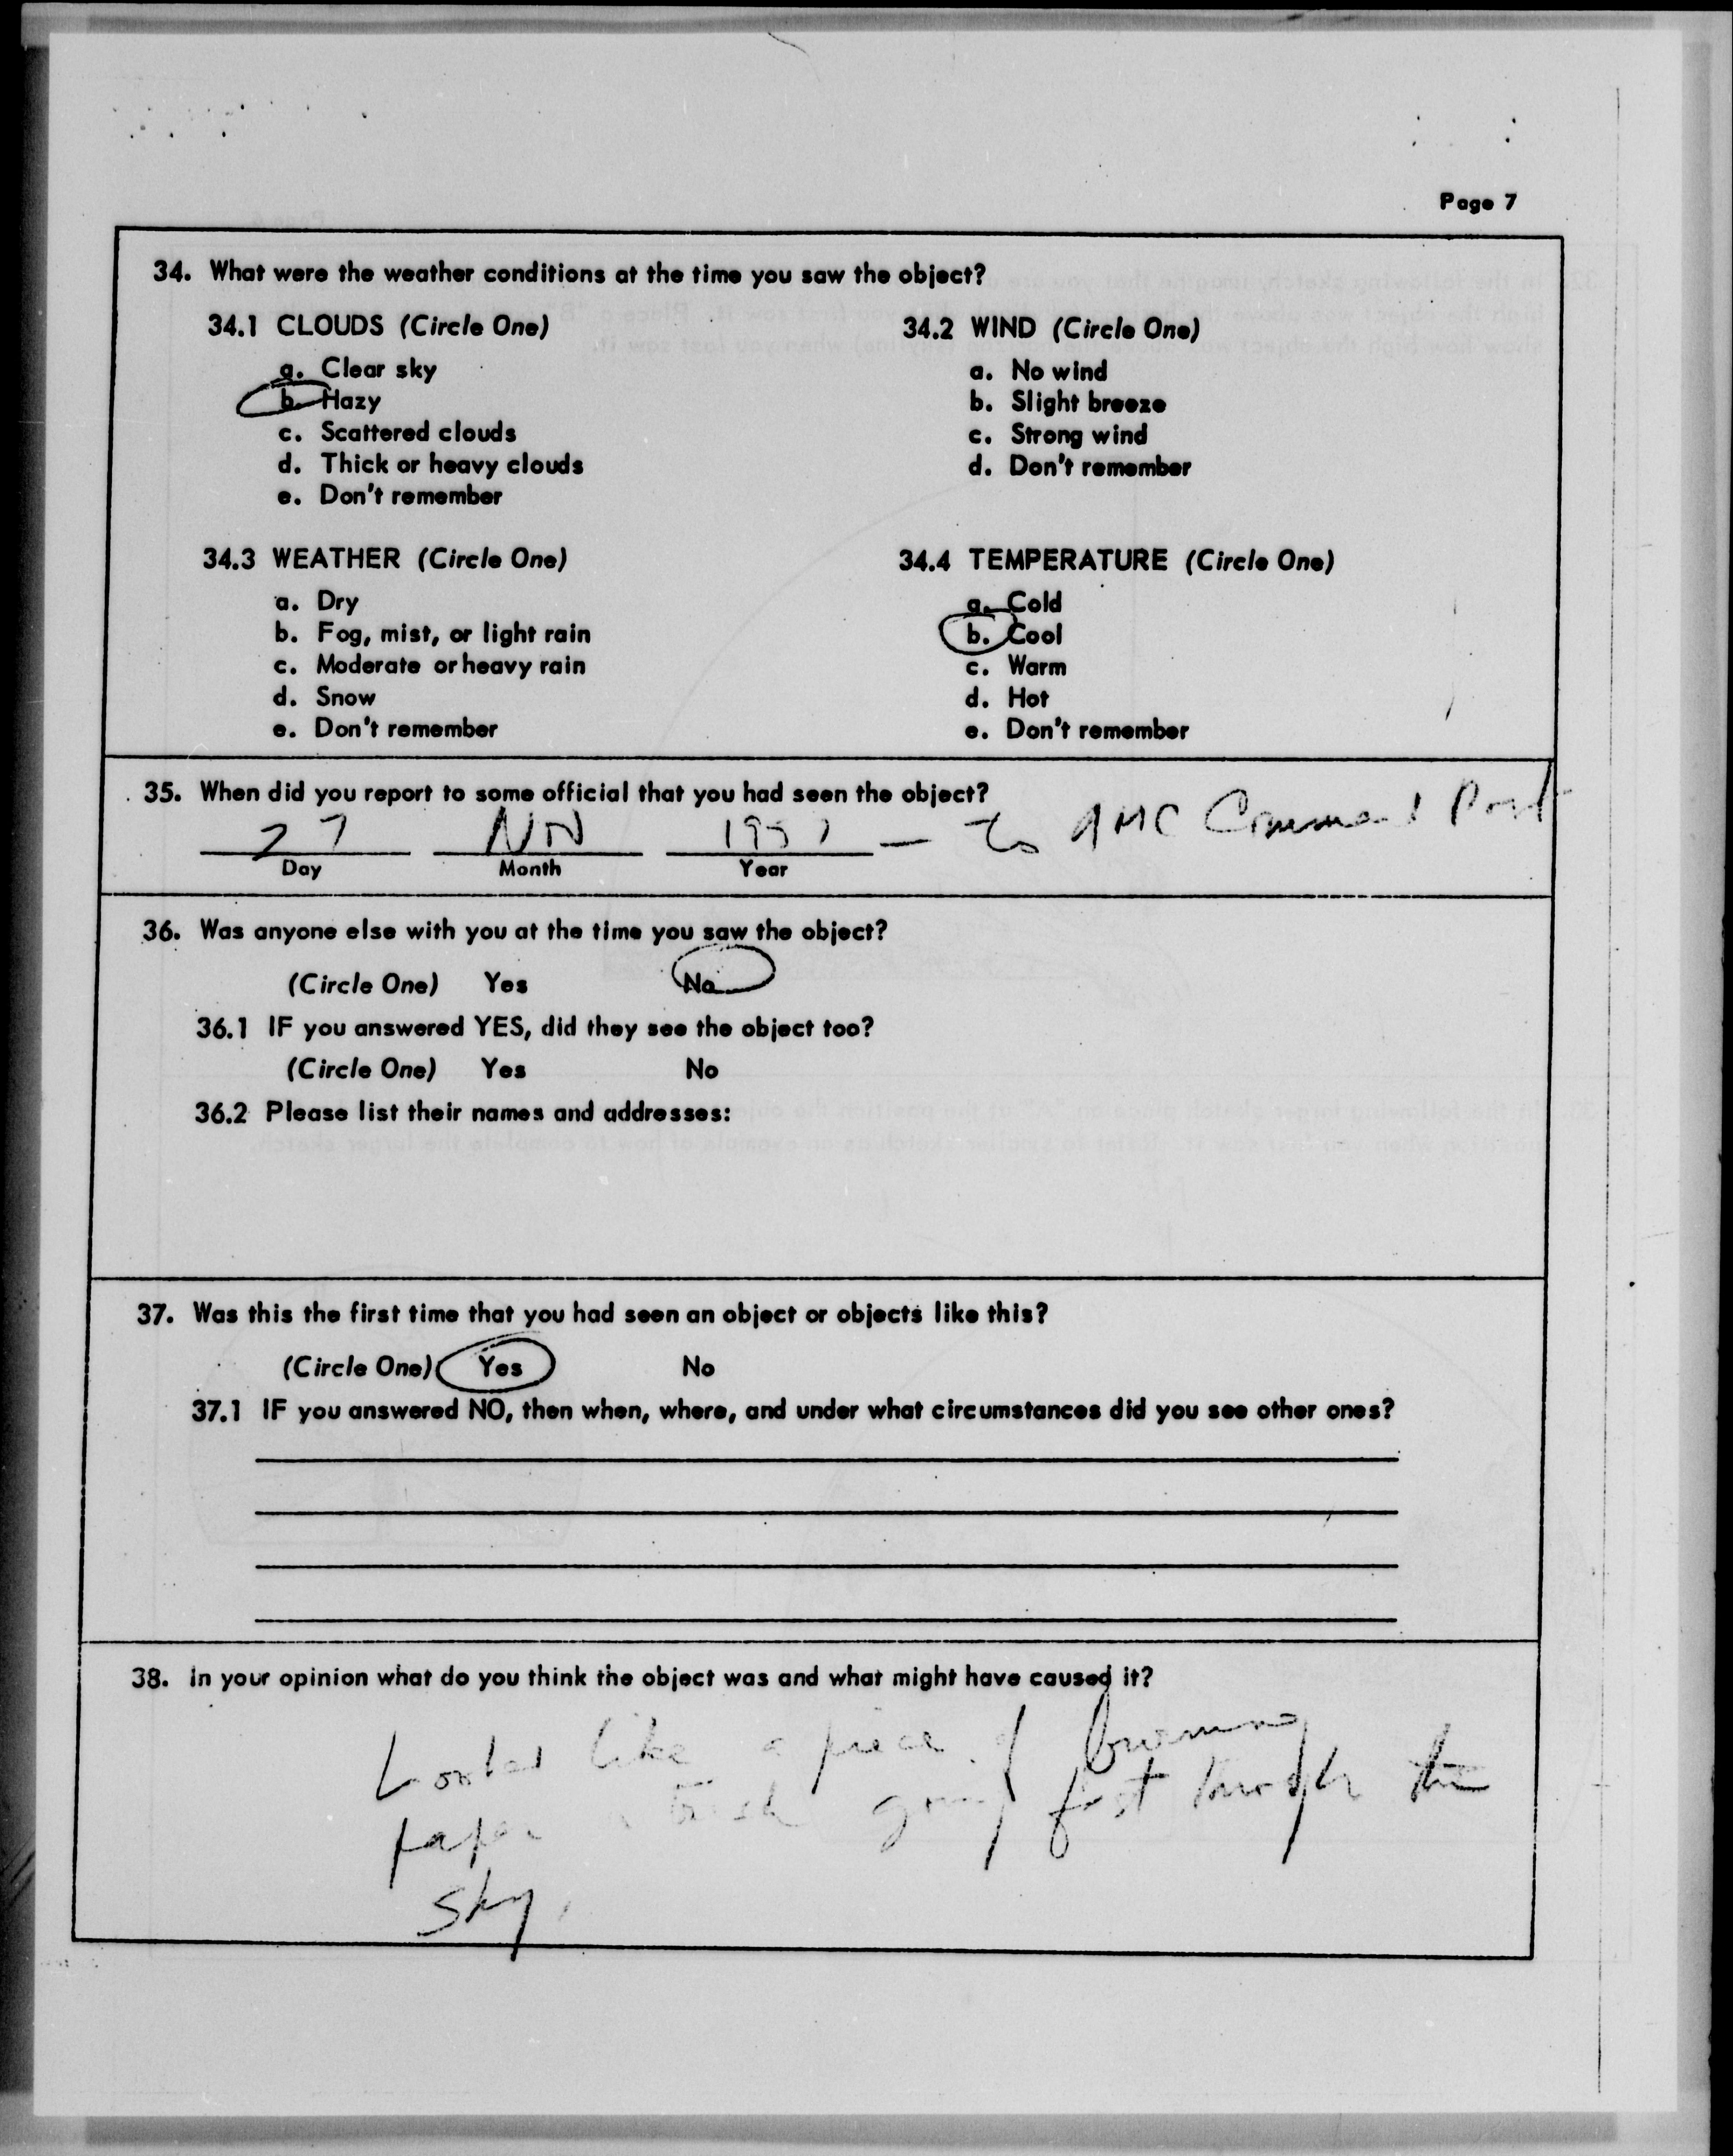 Page 7
34. What were the weather conditions at the time you saw the object?
34.1 CLOUDS (Circle One)
a. Clear sky
b. Hazy
c. Scattered clouds
d. Thick or heavy clouds
e. Don't remember
34.2 WIND (Circle One)
a. No wind
b. Slight breeze
c. Strong wind
d. Don't remember
34.3 WEATHER (Circle One)
a. Dry
b. Fog, mist, or light rain
c. Moderate or heavy rain
d. Snow
e. Don't remember
34.4 TEMPERATURE (Circle One)
a. Cold
b. Cool
c. Warm
d. Hot
e. Don't remember
35. When did you report to some official that you had seen the object?
27 Nov 1957 — to AMC Command Post
Day Month Year
36. Was anyone else with you at the time you saw the object?
(Circle One) Yes No
36.1 IF you answered YES, did they see the object too?
(Circle One) Yes No
36.2 Please list their names and addresses:
37. Was this the first time that you had seen an object or objects like this?
(Circle One) Yes No
37.1 IF you answered NO, then when, where, and under what circumstances did you see other ones?
38. In your opinion what do you think the object was and what might have caused it?
Looked like a piece of burning
paper going fast through the
sky.